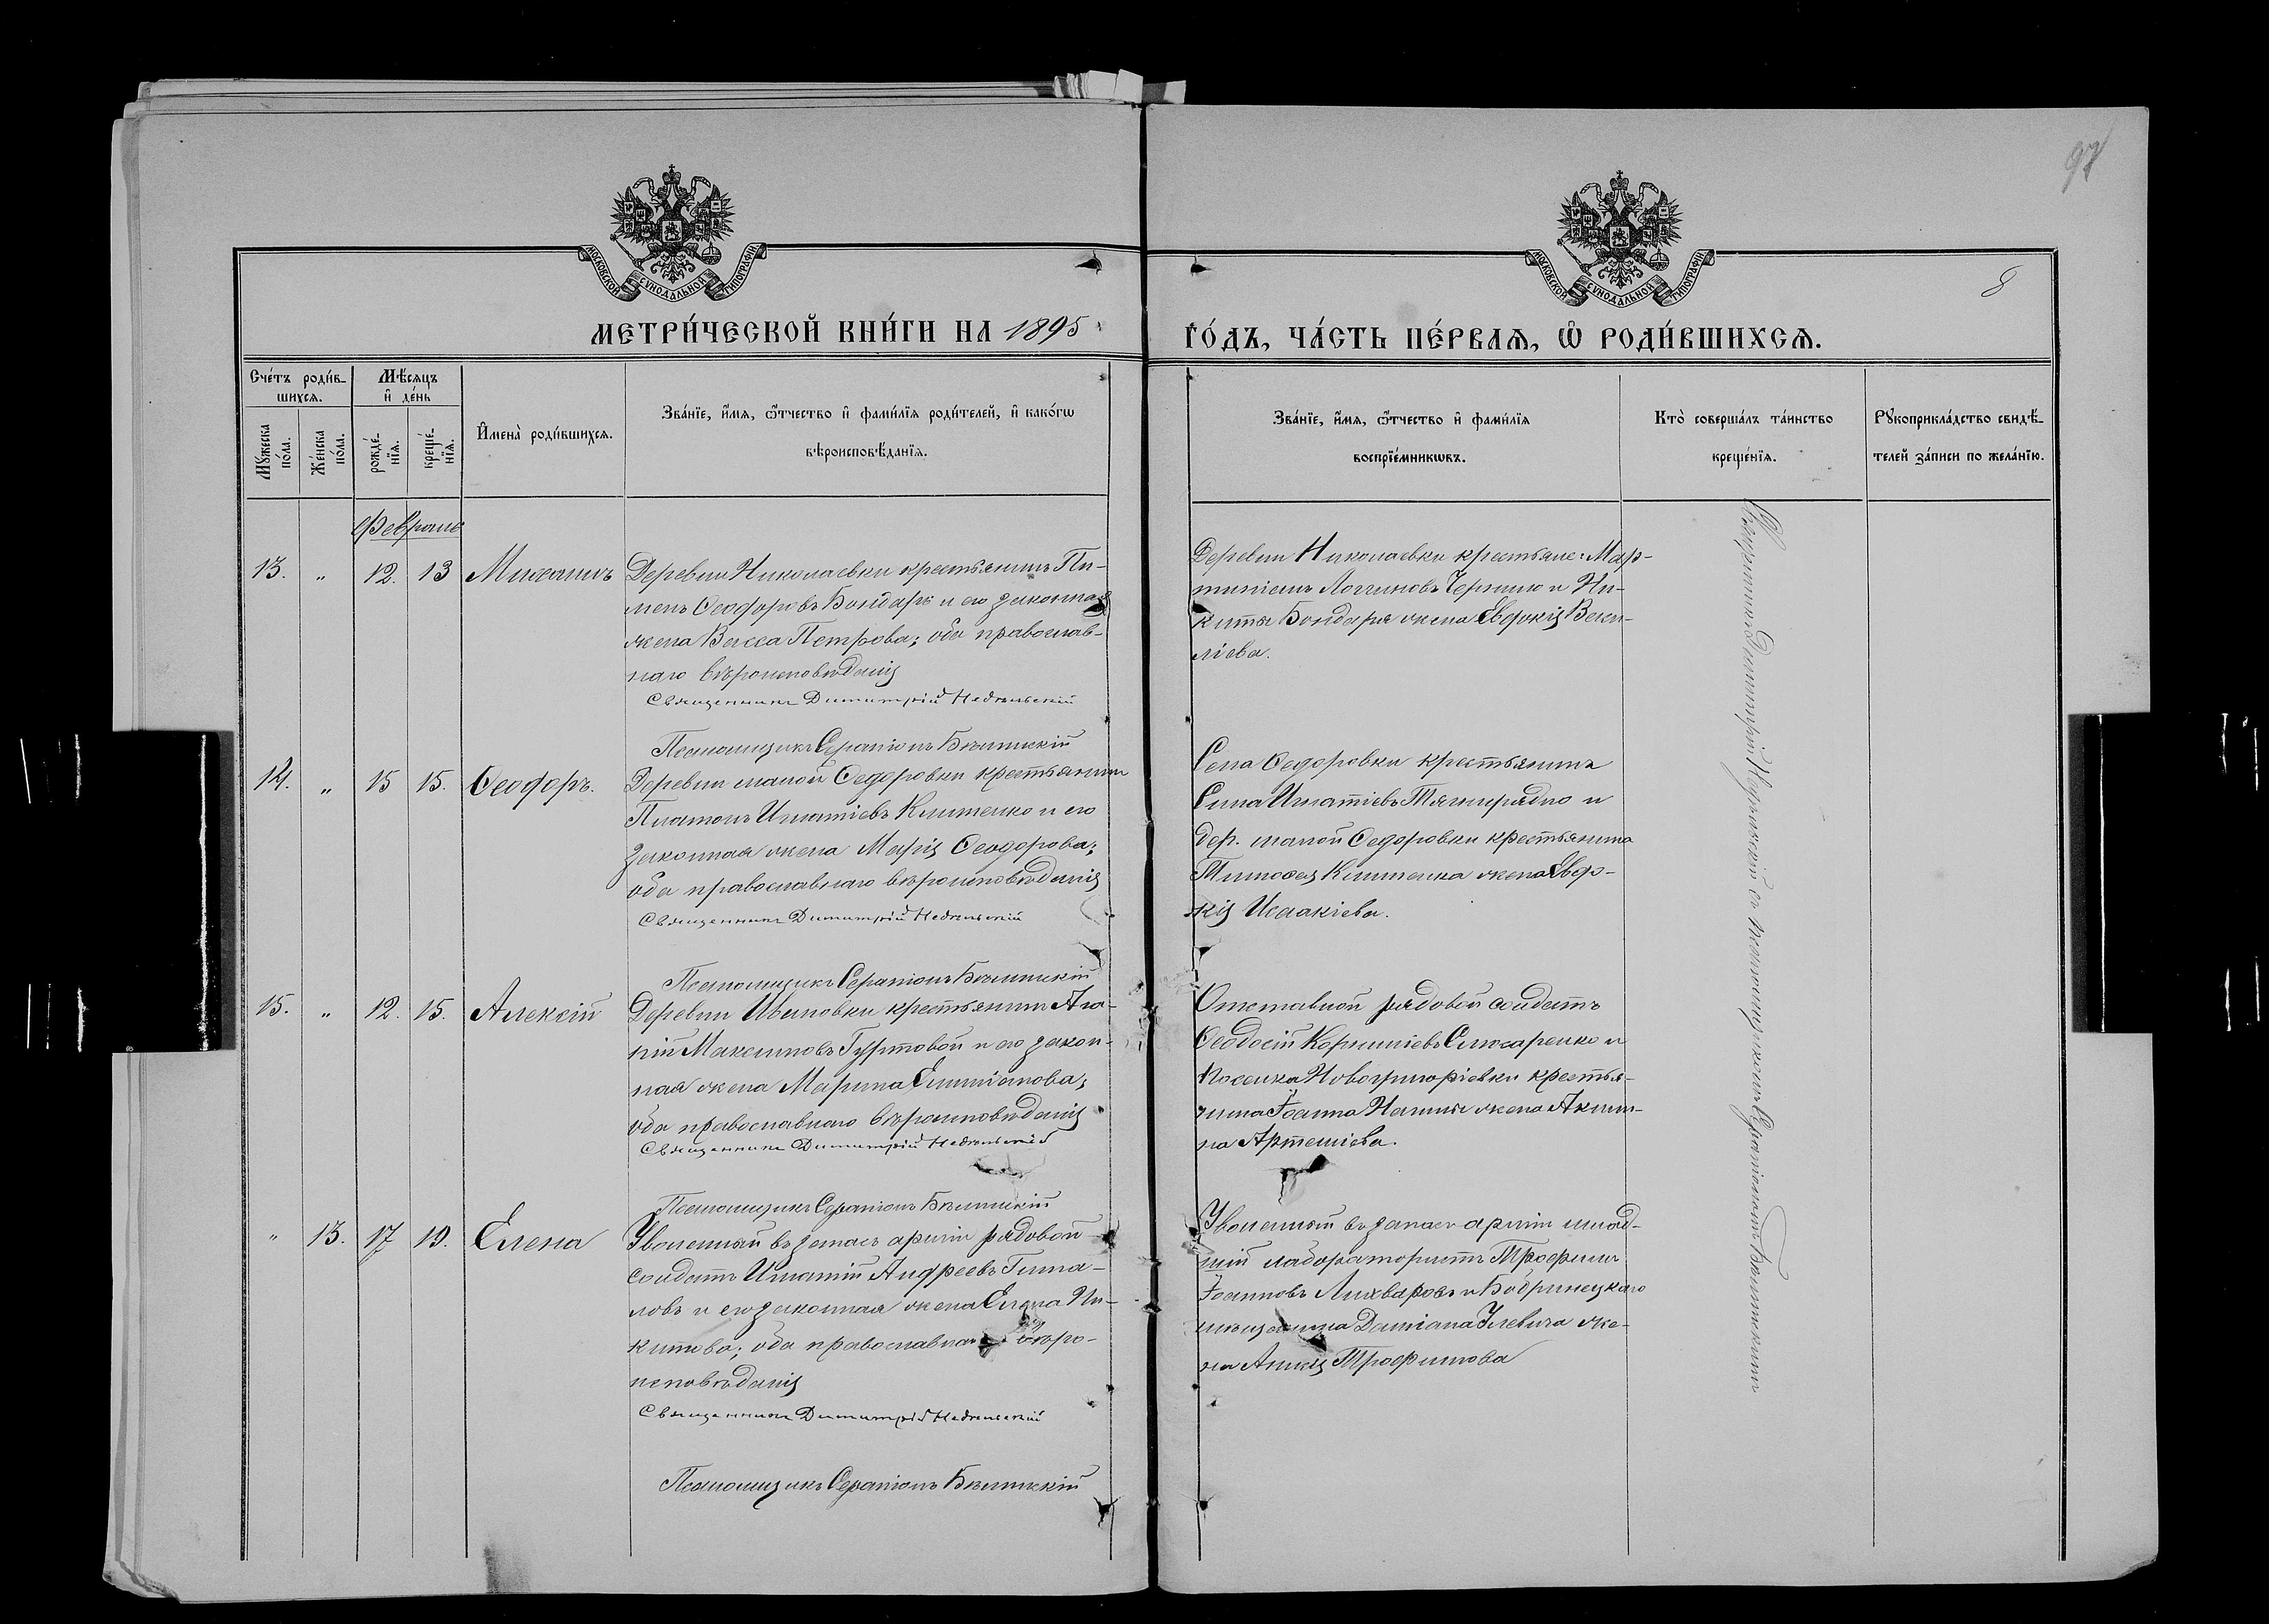 97
8
МОСКОВСКОЙ СѴНОДАЛЬНОЙ ТИПОГРАФІИ
МОСКОВСКОЙ СѴНОДАЛЬНОЙ ТИПОГРАФІИ
МЕТРИ́ЧЕСКОЙ КНИ́ГИ НА 1895
ГО́ДЪ, ЧА́СТЬ ПЕ́РВАЯ, Ѡ РОДИ́ВШИХСЯ.
Сче́тъ роди́в-
шихся.
Мѣ́сяцъ
и де́нь
Мꙋ́жеска
по́ла.
Же́нска
по́ла.
рожде́-
нїя.
креще́-
нїя.
Имена̀ роди́вшихся.
Зва́нїе, и́мя, ѻ҆́тчество и фами́лїя роди́телей, и како́гѡ
вѣроисповѣ́данїя.
Зва́нїе, и́мя, ѻ҆́тчество и фами́лїя
воспрїе́мникѡвъ.
Кто̀ соверша́лъ та́инство
креще́нїя.
Рꙋкоприкла́дство свидѣ́-
телей за́писи по жела́нїю.
Февраль
13. " 12. 13 Михаилъ
Деревни Николаевки крестьянинъ Пи-
менъ Ѳеодоровъ Бондарь и его законная
жена Васса Петрова; оба православ-
наго вѣроисповѣданія
Священникъ Димитрій Недѣльскій
Псаломщикъ Серапіонъ Бѣлинскій
Деревни Николаевки крестьяне: Мар-
тиніанъ Логгиновъ Черныю и Ни-
киты Бондаря жена Евдокія Васи-
ліева.
14. " 15 15. Ѳеодоръ.
Деревни малой Ѳедоровки крестьянинъ
Платонъ Игнатіевъ Клименко и его
законная жена Марія Ѳеодорова;
оба православнаго вѣроисповѣданія
Священникъ Димитрій Недѣльскій
Псаломщикъ Серапіонъ Бѣлинскій
Села Ѳедоровки крестьянинъ
Сила Игнатіевъ Тягнирядно и
дер. малой Ѳедоровки крестьянина
Тимоѳея Клименка жена Евдо-
кія Исаакіева.
15. " 12. 15. Алексій
Деревни Ивановки крестьянинъ Ага-
пій Максимовъ Гуртовой и его закон-
ная жена Марина Емиліанова;
оба православнаго вѣроисповѣданія
Священникъ Димитрій Недѣльскій
Псаломщикъ Серапіонъ Бѣлинскій
Отставной рядовой солдатъ
Ѳеодосій Корниліевъ Слюсаренко и
поселка Новогригоріевки крестья-
нина Іоанна жена Акили-
на Артеміева.
" 13. 17 19. Елена
Уволенный въ запасъ арміи рядовой
солдатъ Игнатій Андреевъ
и его законная жена Елена Ни-
китова; оба православнаго вѣро-
исповѣданія
Священникъ Димитрій Недѣльскій
Псаломщикъ Серапіонъ Бѣлинскій
Уволенный въ запасъ арміи млад-
шій лаборатористъ Трофимъ
Іоанновъ Лихваровъ и Бобринецкаго
мѣщанина Даміана Улевича же-
на Аникія Трофимова
Священникъ Димитрій Недѣльскій съ псаломщикомъ Серапіономъ Бѣлинскимъ